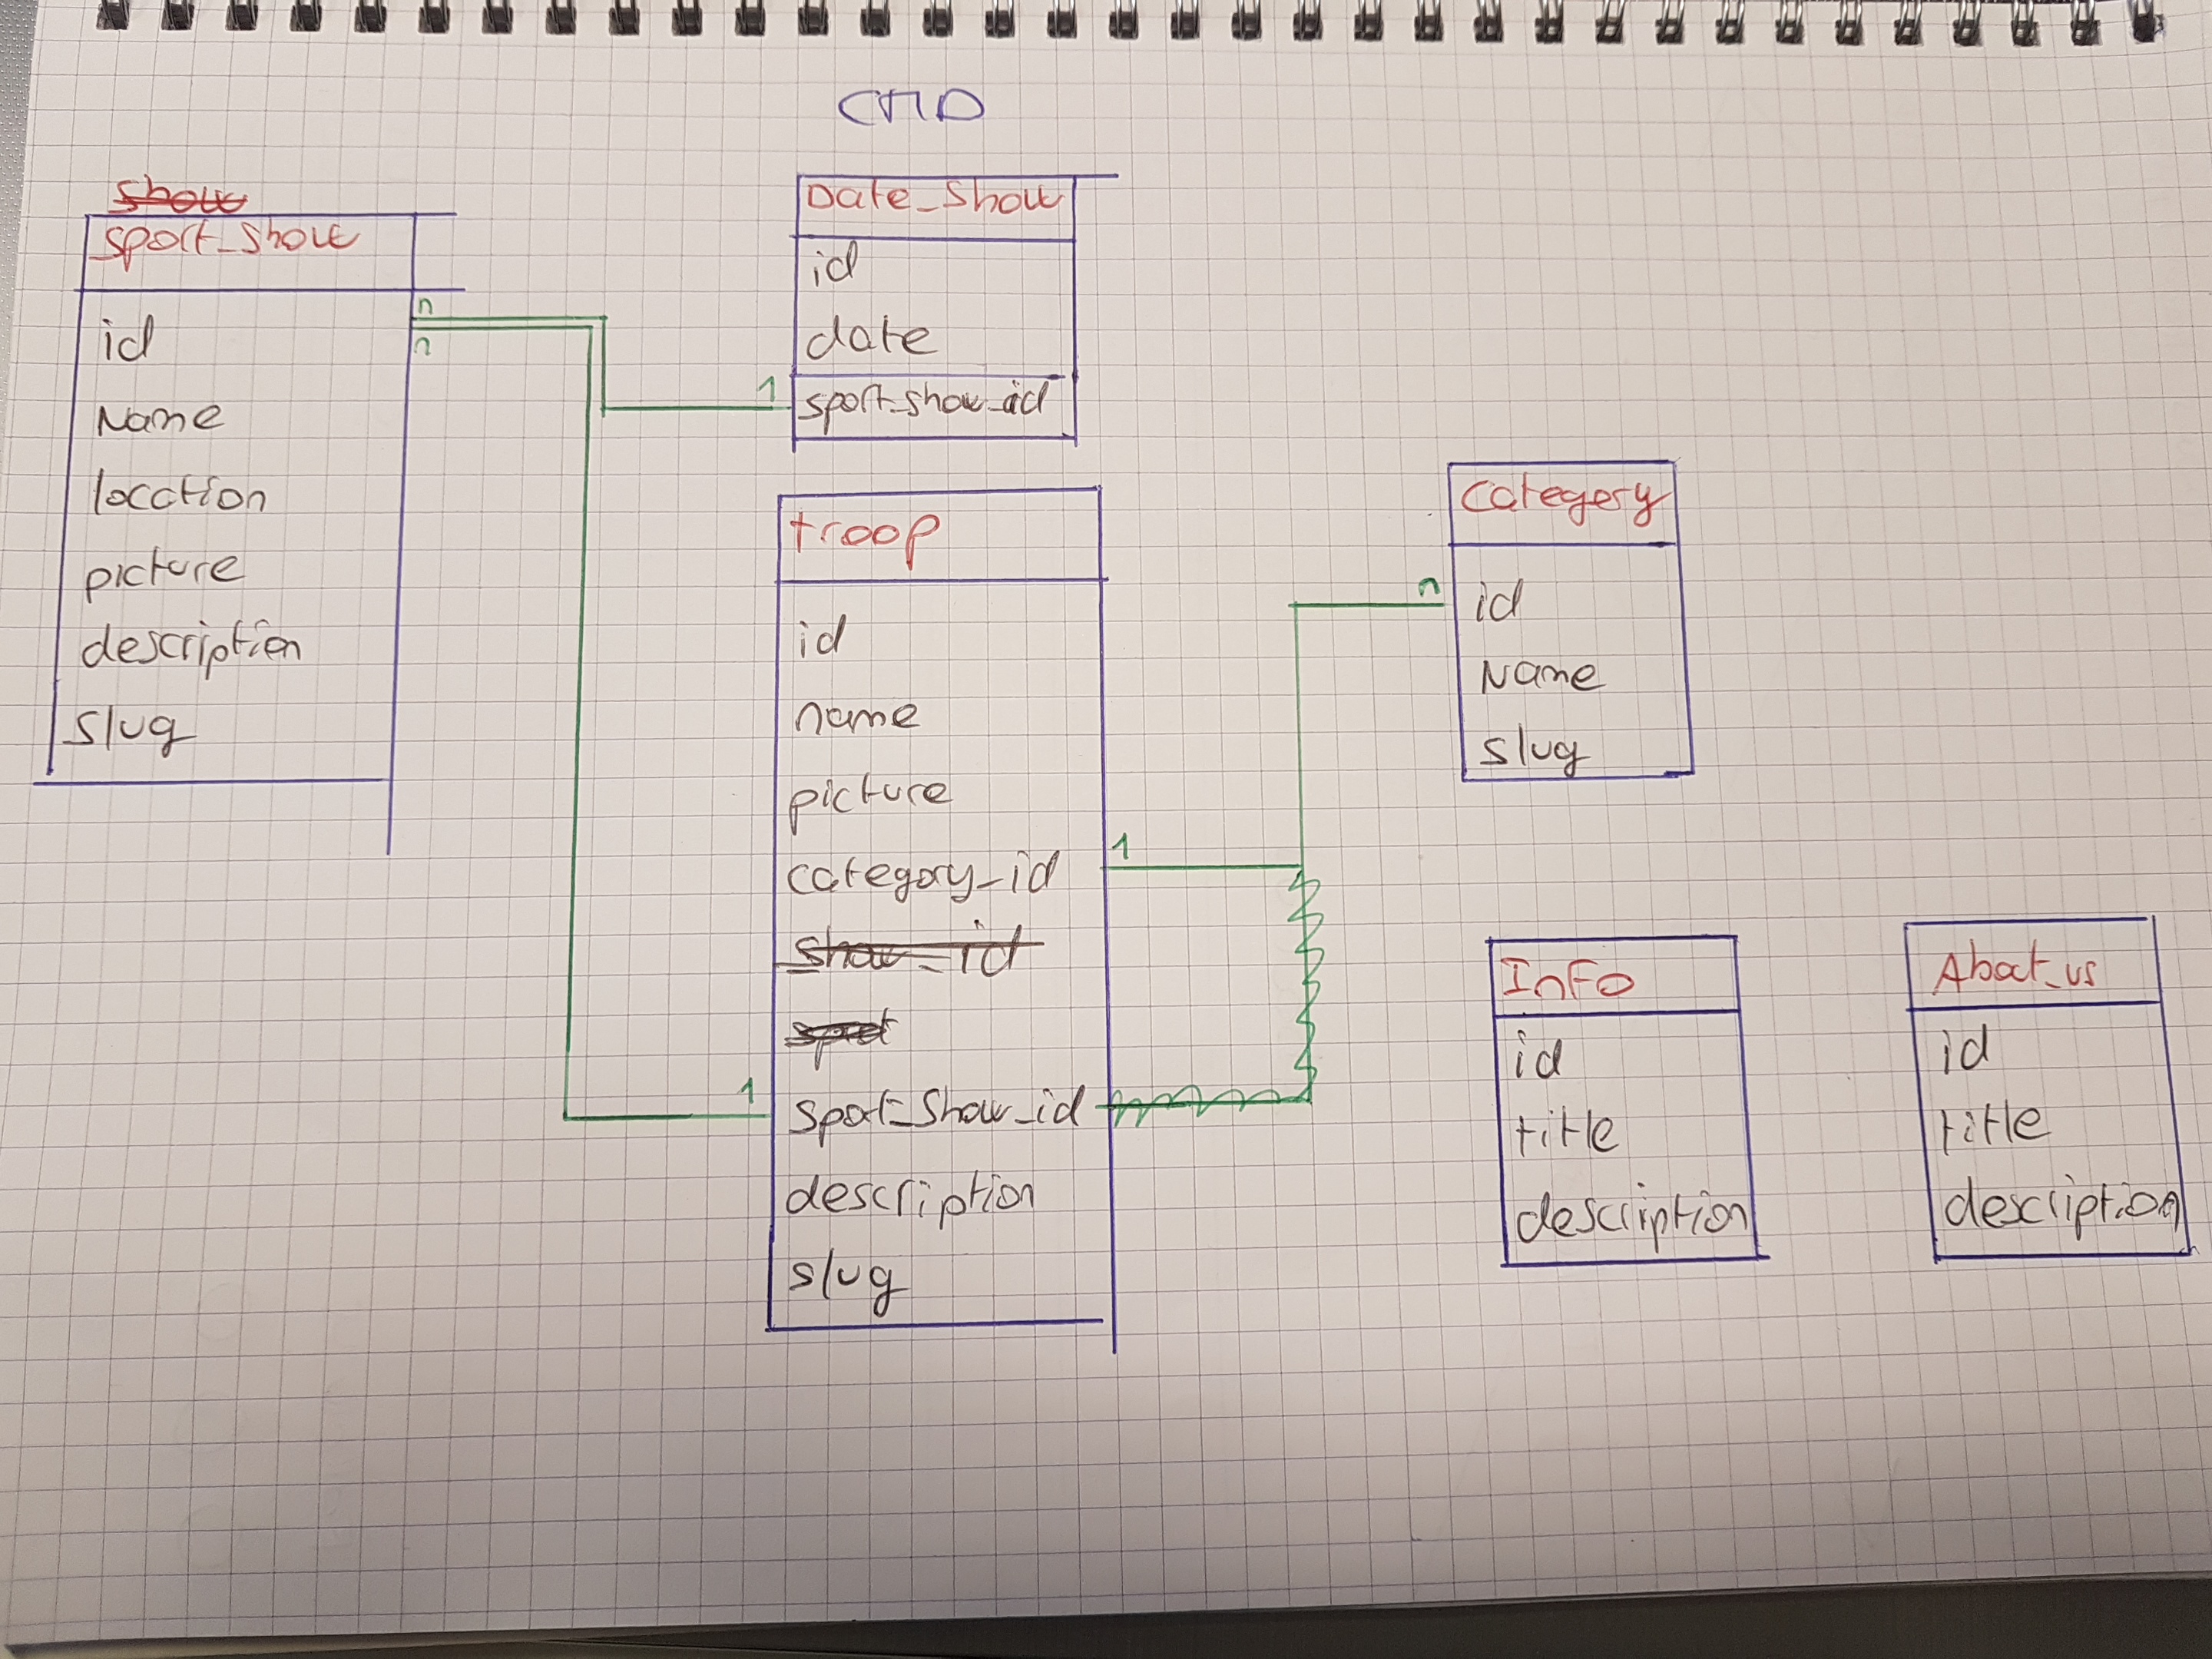 CMD
Show
Sport_Show
id
Name
location
picture
description
Slug
n
n
1
Date_Show
id
date
sport_show_id
1
troop
id
name
picture
category_id
Show_id
Sport_Show_id
description
slug
1
n
Category
id
Name
slug
InFo
id
title
description
About_us
id
title
description